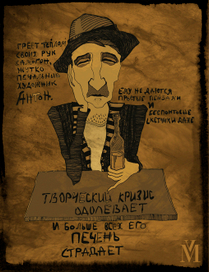 ГРЕЕТ ТЕПЛОМ
СВОИХ РУК
СТАКАН,
ЖУТКО
ПЕЧАЛЬНЫЙ
ХУДОЖНИК
АНТОН.
ЕМУ НЕ ДАЮТСЯ
ПРОСТО ПЕЙЗАЖИ
И
БЕСПОНТОВЫЕ
ЦВЕТОЧКИ ДАЖЕ
ТВОРЧЕСКИЙ КРИЗИС
ОДОЛЕВАЕТ
И БОЛЬШЕ ВСЕХ ЕГО
ПЕЧЕНЬ
СТРАДАЕТ